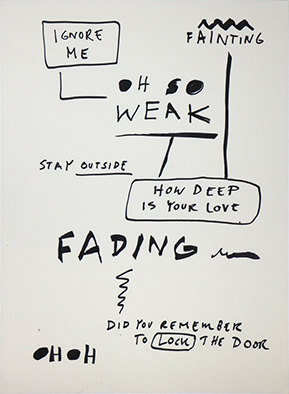 IGNORE
ME
FAINTING
OH SO
WEAK
STAY OUTSIDE
HOW DEEP
IS YOUR LOVE
FADING
DID YOU REMEMBER
TO LOCK THE DOOR
OHOH